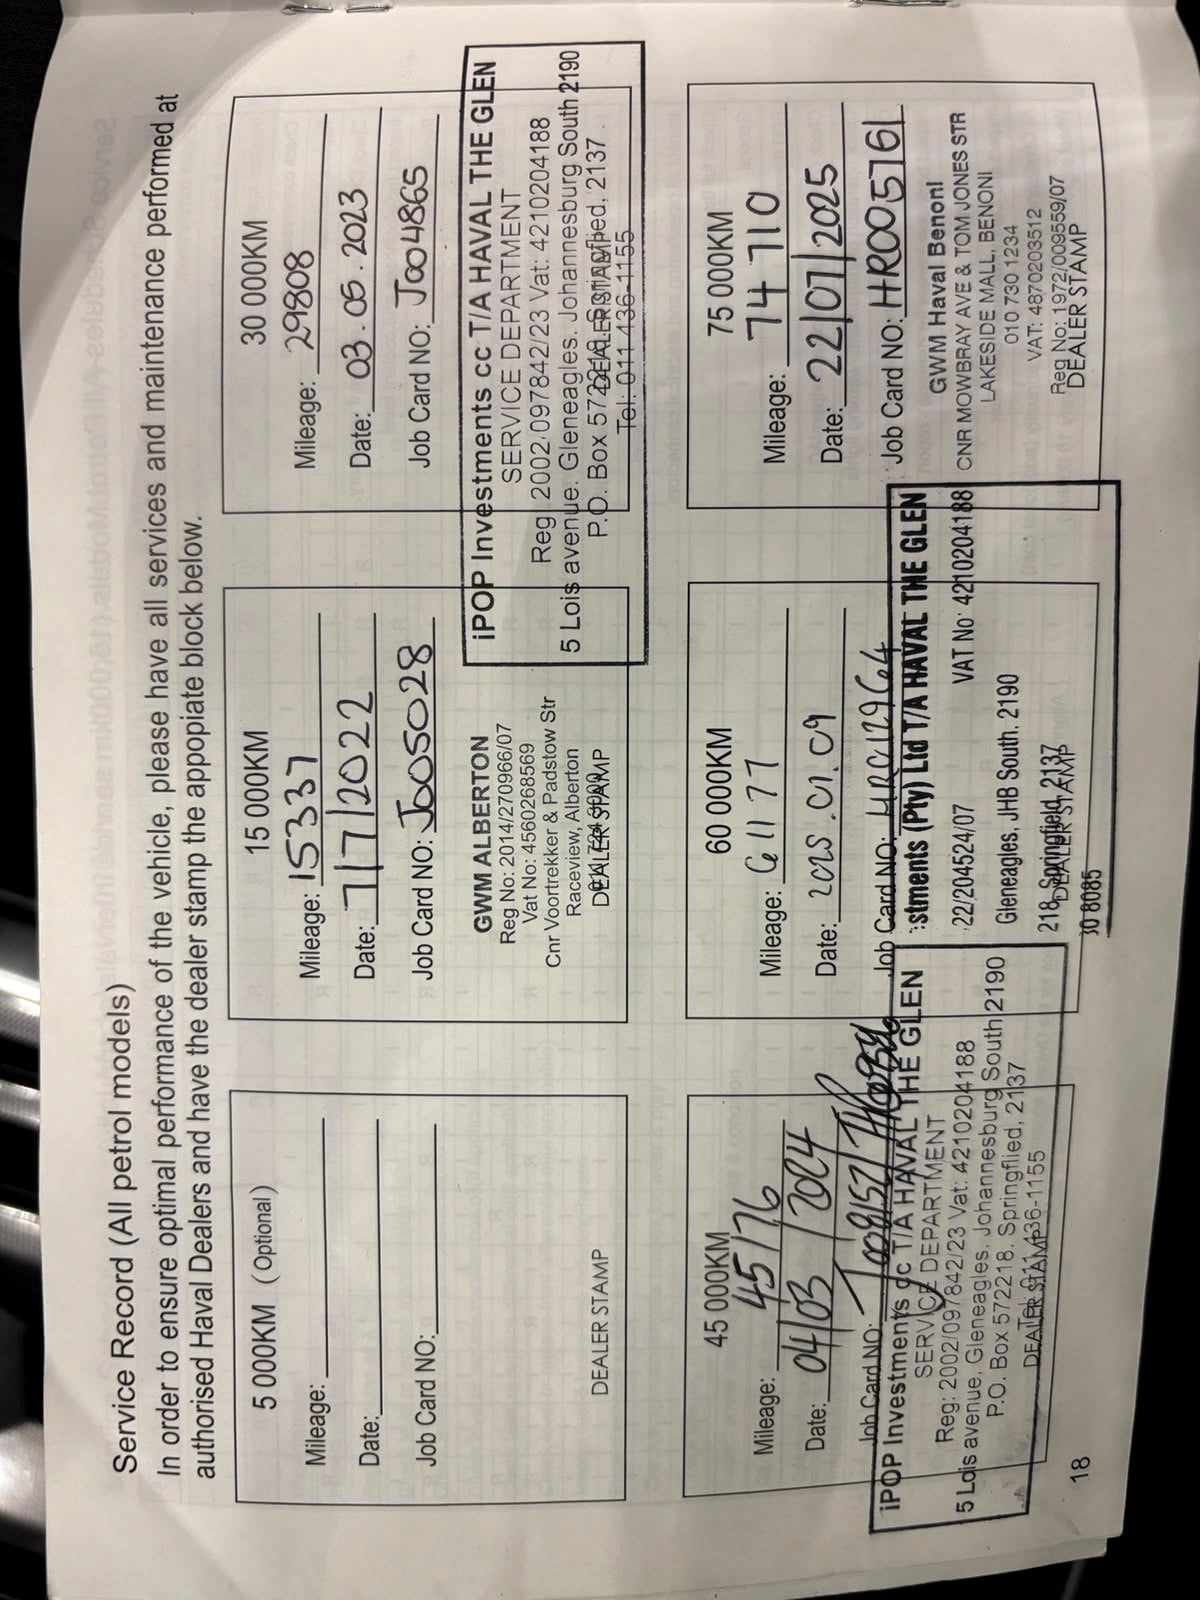 Service Record (All petrol models)
In order to ensure optimal performance of the vehicle, please have all services and maintenance performed at
authorised Haval Dealers and have the dealer stamp the appopiate block below.
5 000KM (Optional)
Mileage:
Date:
Job Card NO:
DEALER STAMP
15 000KM
Mileage: 15337
Date: 7/7/2022
Job Card NO: J005028
GWM ALBERTON
Reg No: 2014/270966/07
Vat No: 4560268569
Cnr Voortrekker & Padstow Str
Raceview, Alberton
DEALER STAMP
30 000KM
Mileage: 29808
Date: 03.05.2023
Job Card NO: J004865
iPOP Investments cc T/A HAVAL THE GLEN
SERVICE DEPARTMENT
Reg: 2002/097842/23 Vat: 4210204188
5 Lois avenue, Gleneagles, Johannesburg South 2190
P.O. Box 572218, Springflied, 2137
DEALER STAMP
Tel: 011 436-1155
45 000KM
Mileage: 45176
Date: 04/03/2024
Job Card NO:
iPOP Investments cc T/A HAVAL THE GLEN
SERVICE DEPARTMENT
Reg: 2002/097842/23 Vat: 4210204188
5 Lois avenue, Gleneagles, Johannesburg South 2190
P.O. Box 572218, Springflied, 2137
Tel: 011 436-1155
DEALER STAMP
60 000KM
Mileage: 61177
Date: 2025.01.09
Job Card NO:
stments (Pty) Ltd T/A HAVAL THE GLEN
22/204524/07 VAT No: 4210204188
Gleneagles, JHB South, 2190
218, Springfield, 2137
DEALER STAMP
30 8085
75 000KM
Mileage: 74 710
Date: 22/07/2025
Job Card NO: HR005761
GWM Haval Benoni
CNR MOWBRAY AVE & TOM JONES STR
LAKESIDE MALL, BENONI
010 730 1234
VAT: 4870203512
Reg No: 1972/009559/07
DEALER STAMP
18